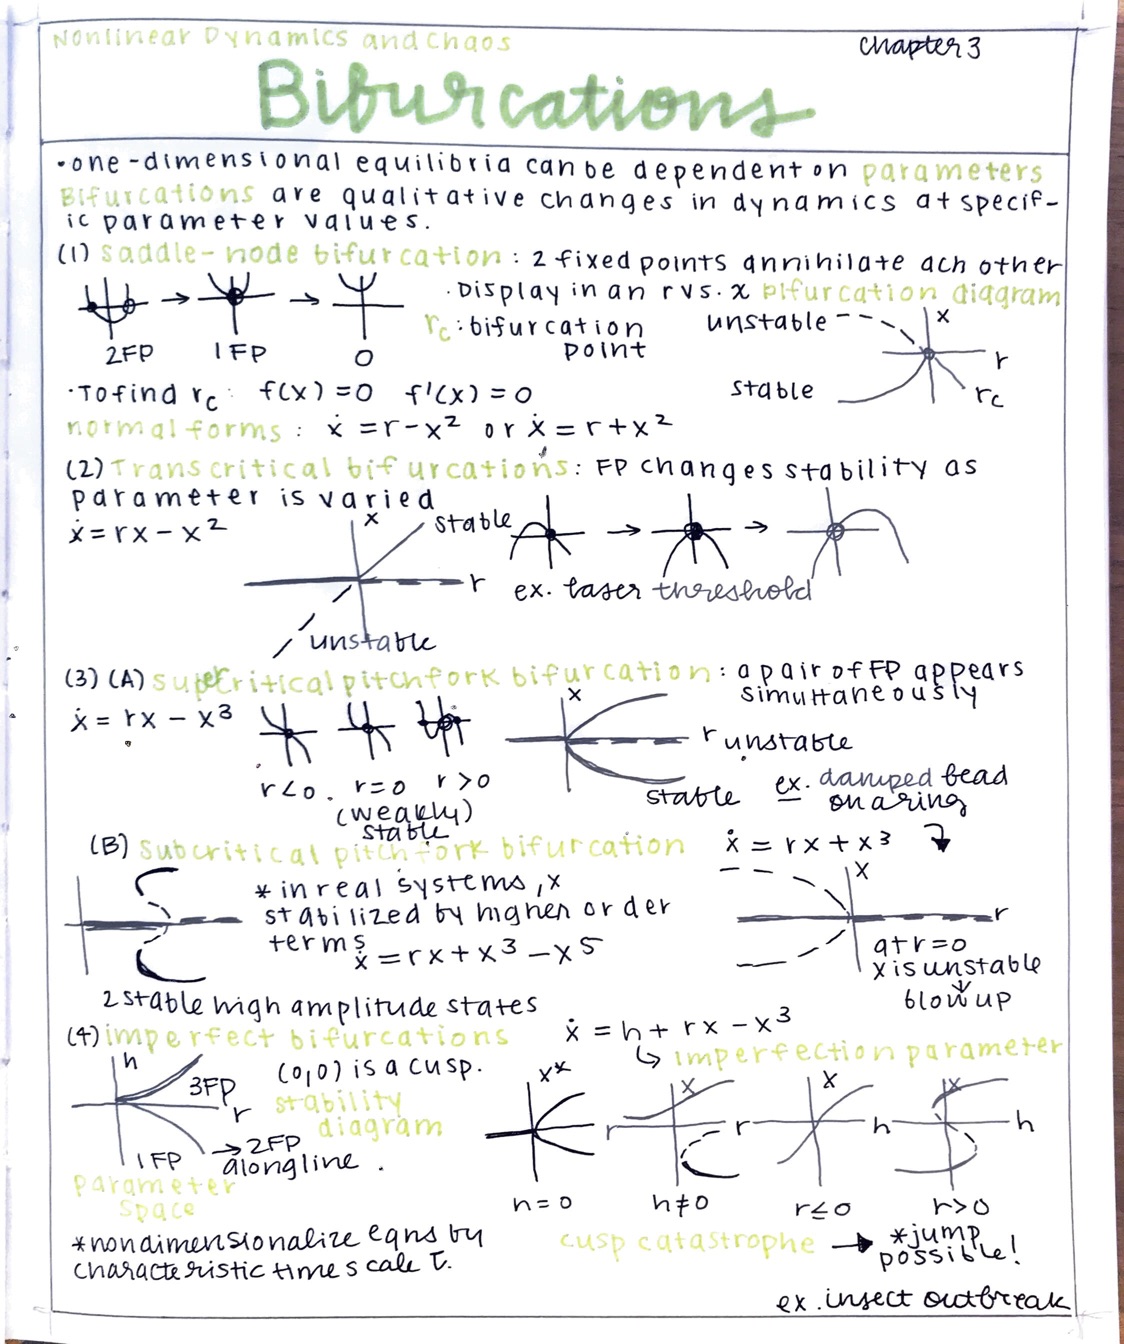 Nonlinear Dynamics and Chaos
Chapter 3
Bifurcations
•one-dimensional equilibria can be dependent on parameters
Bifurcations are qualitative changes in dynamics at specif-
ic parameter values.
(1) saddle-node bifurcation: 2 fixed points annihilate ach other
•Display in an r vs. x bifurcation diagram
2FP 1FP 0
rc: bifurcation
point
unstable
x
r
stable
rc
•To find rc: f(x)=0 f'(x)=0
normal forms: ẋ = r-x² or ẋ = r+x²
(2) Transcritical bifurcations: FP changes stability as
parameter is varied
ẋ = rx - x²
x
stable
r
unstable
ex. laser threshold
(3) (A) supercritical pitchfork bifurcation: a pair of FP appears
simultaneously
ẋ = rx - x³
r<0. r=0 r>0
(weakly)
stable
x
r unstable
stable
ex. damped bead
on a ring
(B) subcritical pitchfork bifurcation ẋ = rx + x³
* in real systems, x
stabilized by higher order
terms
ẋ = rx + x³ - x⁵
2 stable high amplitude states
x
r
at r=0
x is unstable
↓
blow up
(4) imperfect bifurcations ẋ = h + rx - x³
↳ imperfection parameter
h
3FP
r
1FP
→2FP
along line.
(0,0) is a cusp.
stability
diagram
parameter
space
x*
r
h=0
x
r
h≠0
x
h
r≤0
x
h
r>0
*nondimensionalize eqns by
characteristic timescale τ.
cusp catastrophe → *jump
possible!
ex. insect outbreak